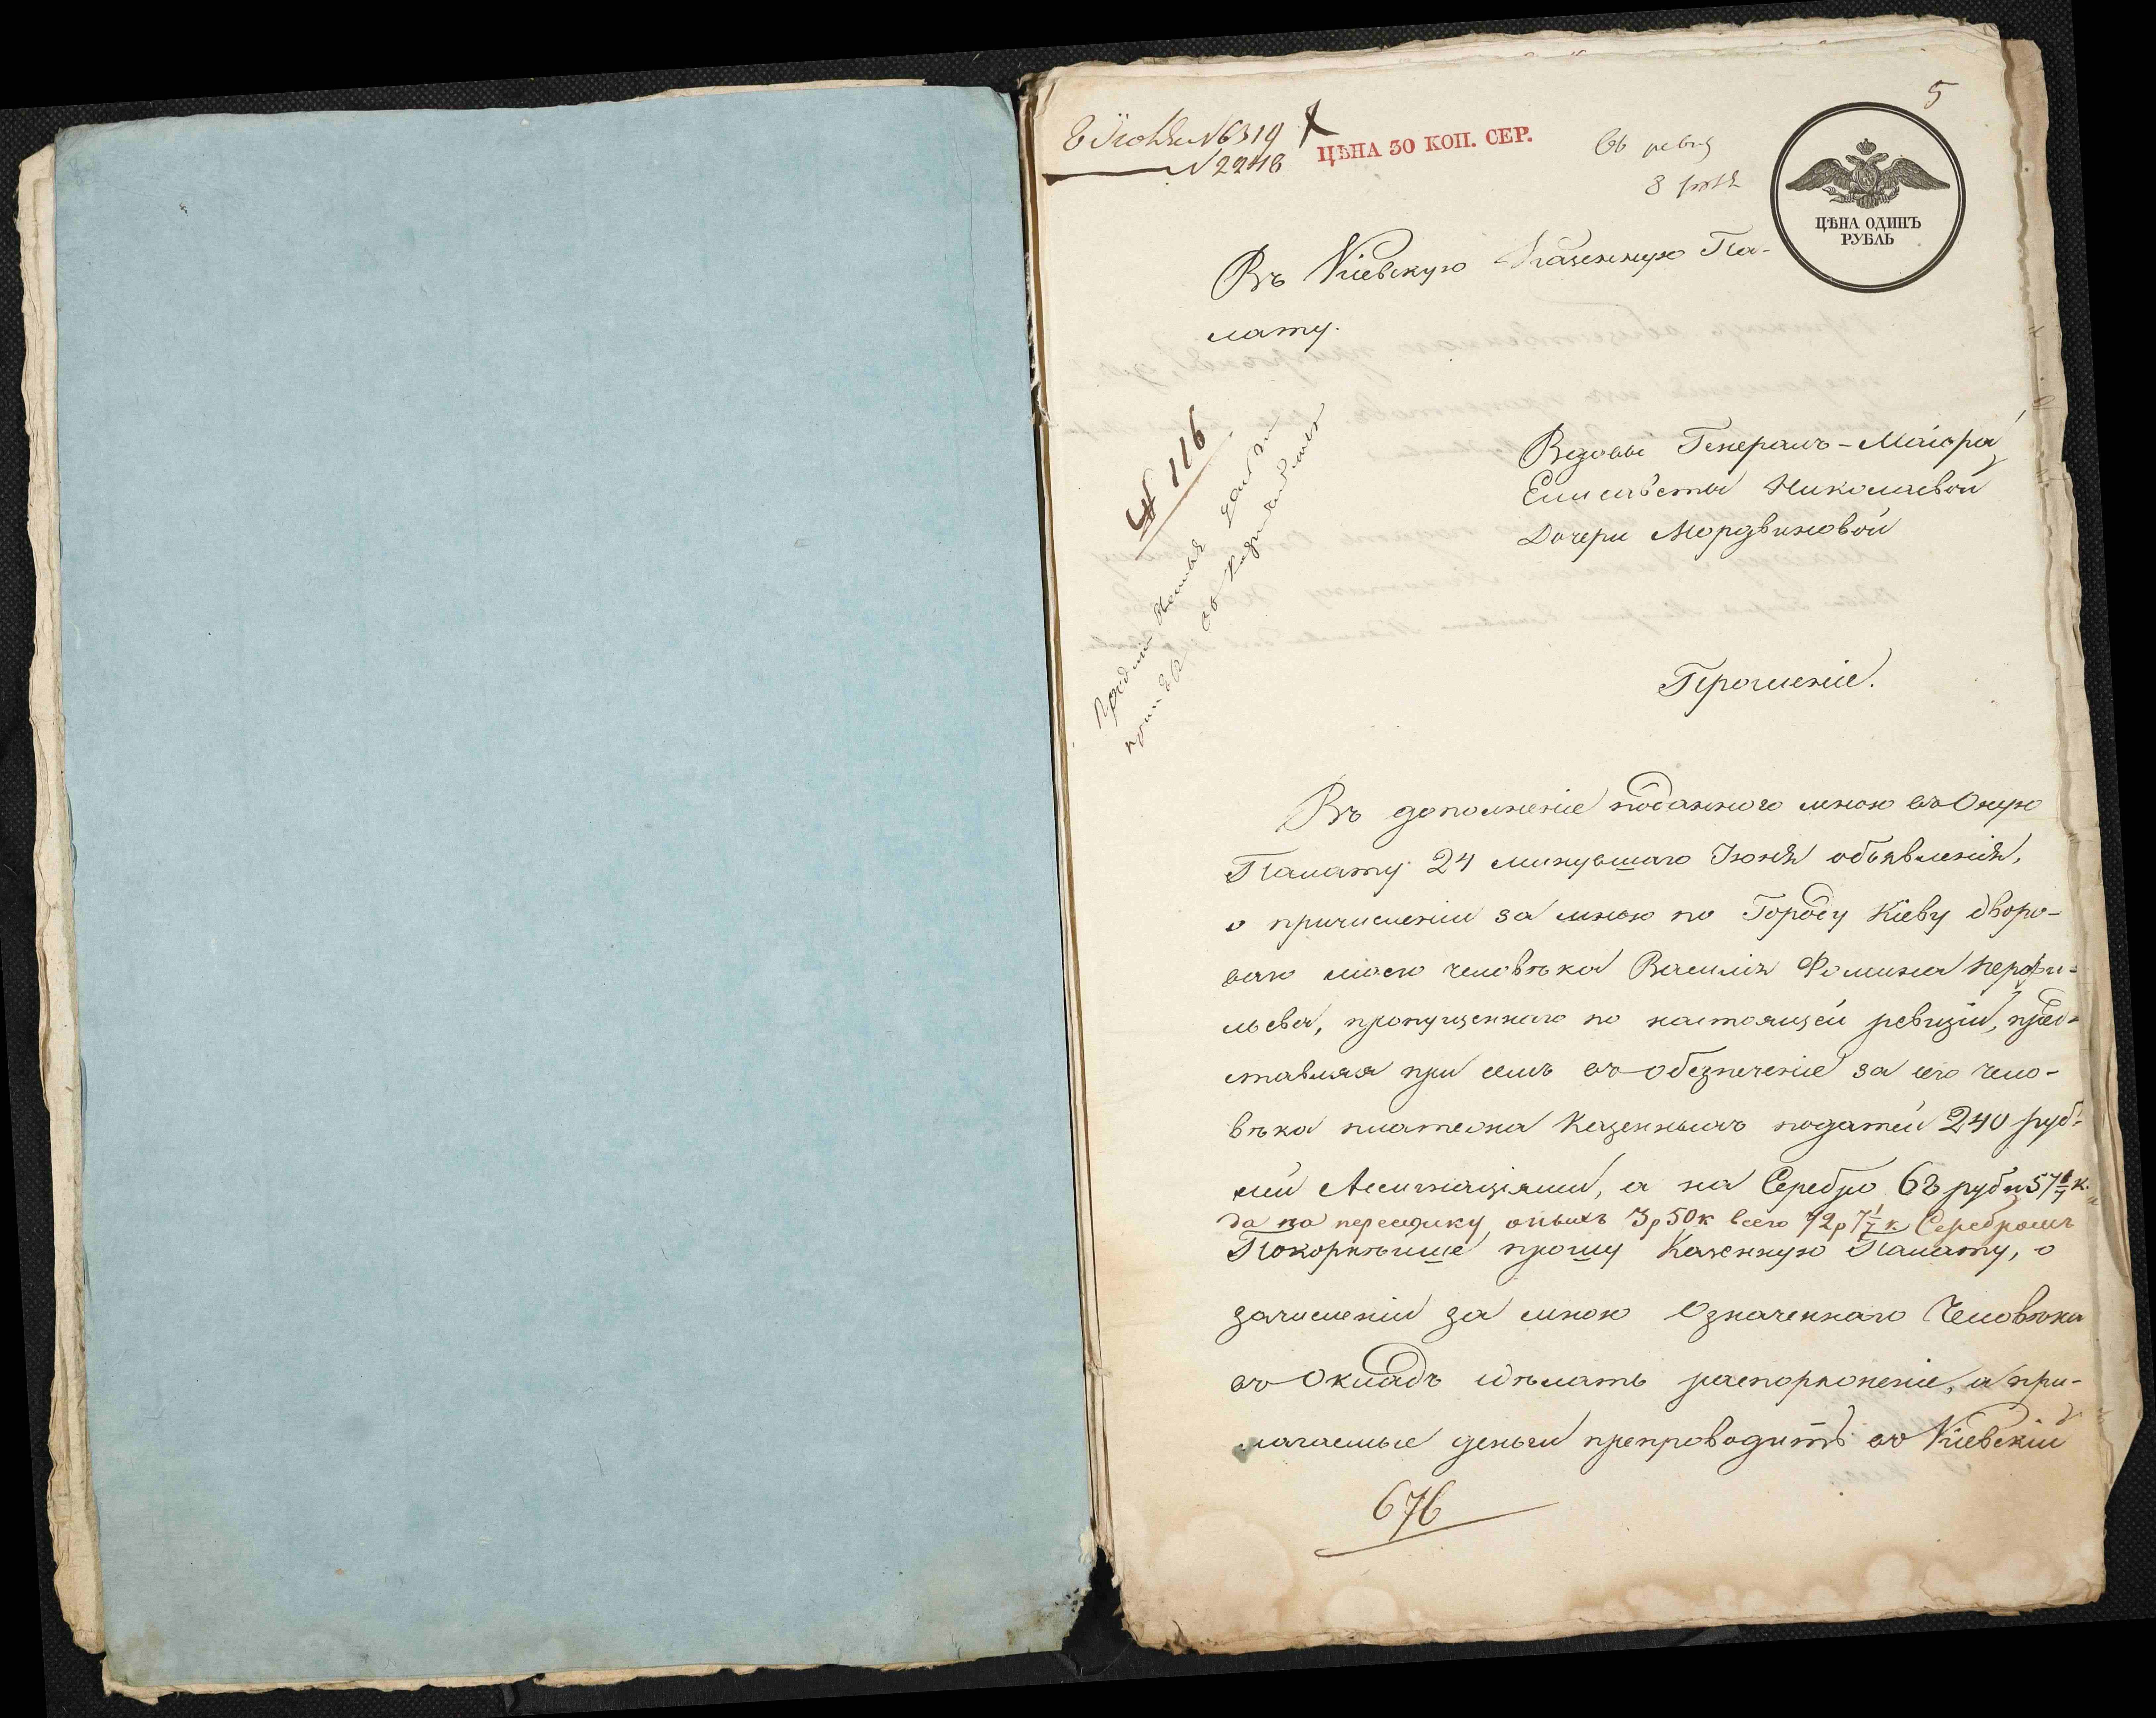 5
8 Июля № 6319
№ 2248
ЦѢНА 30 КОП. СЕР.
ЦѢНА ОДИНЪ
РУБЛЬ
Въ Кіевскую Казенную Па-
лату.
№ 116
Вдовы Генералъ-Маіора
Елисаветы Николаевой
Дочери Мордвиновой
Прошеніе.
Въ дополненіе поданного мною въ Оную
Палату 24 минувшаго Іюня объявленія,
о причисленіи за мною по Городу Кіеву дворо-
ваго моего человѣка Василія Фомина Перфи-
льева, пропущеннаго по настоящей ревизіи, пред-
ставляя при семъ въ обезпеченіе за его чело-
вѣка платежа Казенныхъ податей 240 руб-
лей Ассигнаціями, а на Серебро 68 руб 57 1/7 к.
да на пересылку оныхъ 3р 50к всего 72р 7 1/7 к Серебромъ
Покорнѣйше прошу Казенную Палату, о
зачисленіи за мною Означеннаго Человѣка
въ Окладъ сдѣлать распоряженіе, а при-
лагаемые деньги препроводить въ Кіевскій
676